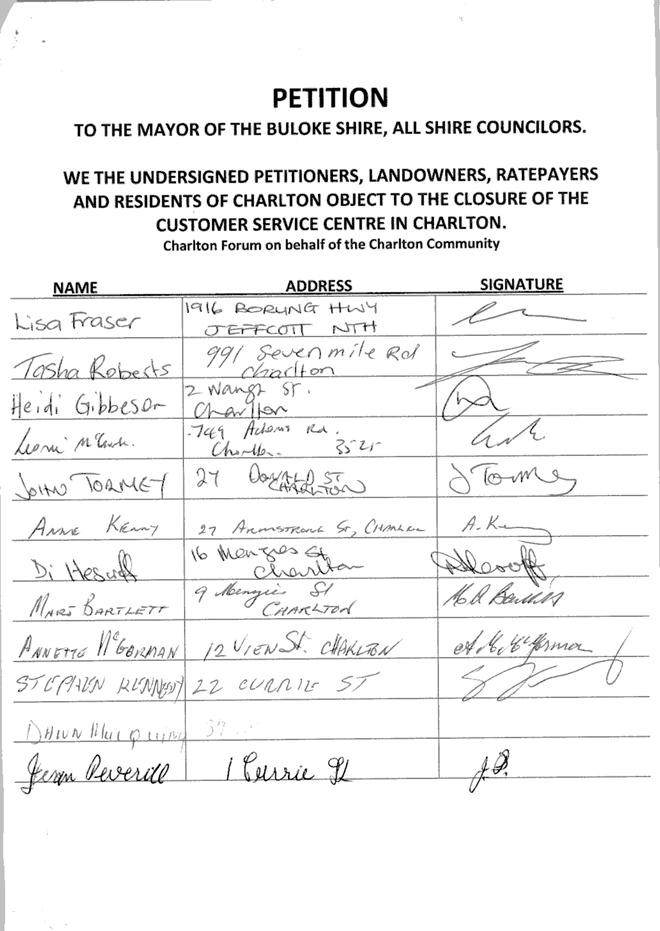 PETITION
TO THE MAYOR OF THE BULOKE SHIRE, ALL SHIRE COUNCILORS.
WE THE UNDERSIGNED PETITIONERS, LANDOWNERS, RATEPAYERS
AND RESIDENTS OF CHARLTON OBJECT TO THE CLOSURE OF THE
CUSTOMER SERVICE CENTRE IN CHARLTON.
Charlton Forum on behalf of the Charlton Community
NAME ADDRESS SIGNATURE
Lisa Fraser 1916 BORUNG HWY
JEFFCOTT NTH
Tasha Roberts 991 Sevenmile Rd
Charlton
Heidi Gibbeson 2 St.
Charlton
749 Rd.
3525
JOHN TORMEY 27 DONALD ST J Tormey
CHARLTON
ANNE KENNY 27 ARMSTRONG ST, A. K
Di 16 Menzies St
Charlton
9 Menzies St
BARTLETT CHARLTON
ANNETTE McGORMAN 12 VIEW St. CHARLTON
STEPHEN KENNEDY 22 CURRIE ST
Peverill 1 Currie St J.P.